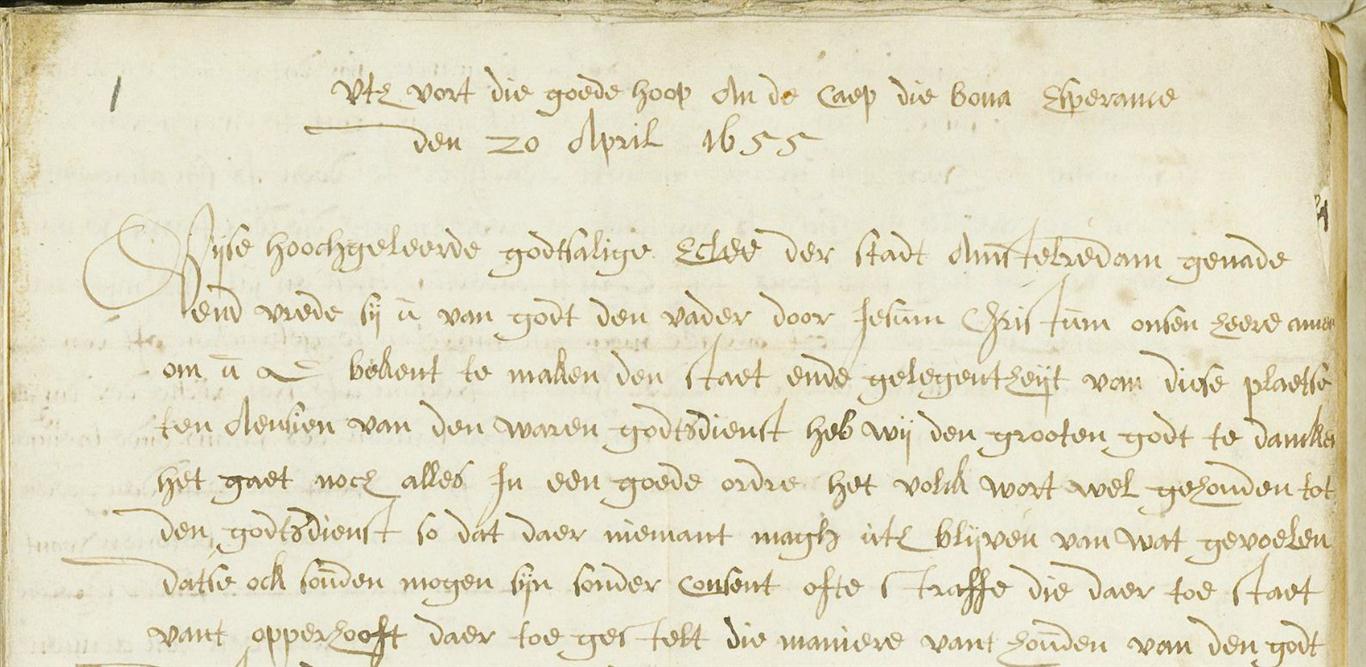 1
Vtz vort die goede hoop An de Caep die bona Esperance
den 20 April 1655
Wijse hoochgeleerde godtsalige der stadt Amstelredam genade
end vrede sij ū van godt den vader door Jesūm Christūm onsen heere amen
om ū E bekent te maken den staet ende gelegentheijt van diese plaetse
ten Aensien van den waren godtsdienst heb wij den grooten godt te dancken
het gaet noch alles In een goede ordre het volck wort wel gehouden tot
den godtsdienst so dat daer niemant magh ūtz blijven van wat gevoelen
datse ock soūden mogen sijn sonder Consent ofte straffe die daer toe staet
vant opperhooft daer toe gestelt die maniere vant hoūden van den godt